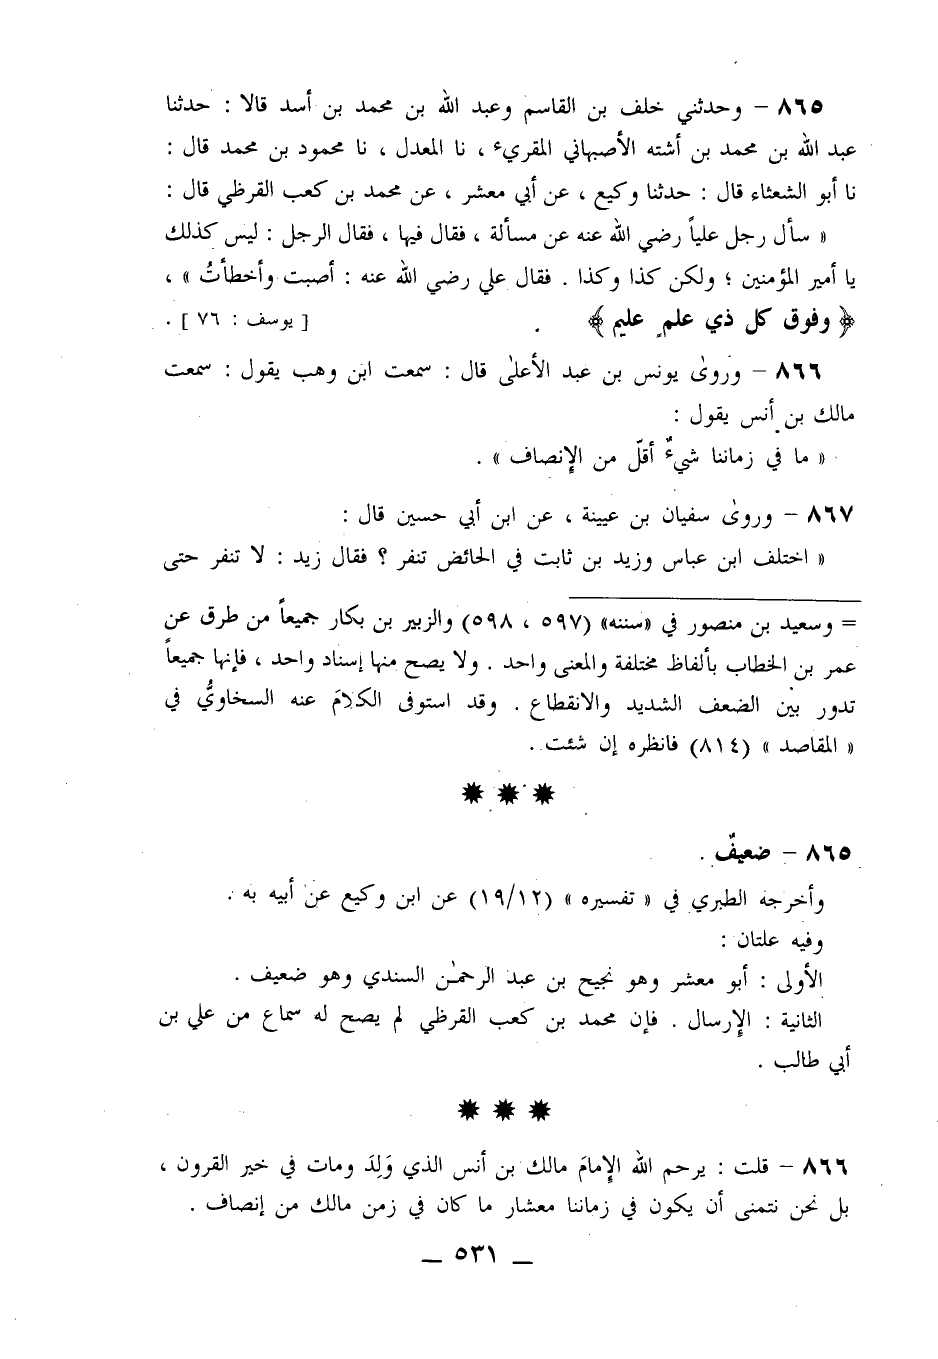 ٨٦٥ – وحدثني خلف بن القاسم وعبد الله بن محمد بن أسد قالا : حدثنا
عبد الله بن محمد بن أشته الأصبهاني المقريء ، نا المعدل ، نا محمود بن محمد قال :
نا أبو الشعثاء قال : حدثنا وكيع ، عن أبي معشر ، عن محمد بن كعب القرظي قال :
« سأل رجل علياً رضي الله عنه عن مسألة ، فقال فيها ، فقال الرجل : ليس كذلك
يا أمير المؤمنين ؛ ولكن كذا وكذا . فقال علي رضي الله عنه : أصبت وأخطأتُ » ،
﴿ وفوق كل ذي علمٍ عليم ﴾ [ يوسف : ٧٦ ] .
٨٦٦ – وروىٰ يونس بن عبد الأعلىٰ قال : سمعت ابن وهب يقول : سمعت
مالك بن أنس يقول :
« ما في زماننا شيءٌ أقلّ من الإنصاف » .
٨٦٧ – وروىٰ سفيان بن عيينة ، عن ابن أبي حسين قال :
« اختلف ابن عباس وزيد بن ثابت في الحائض تنفر ؟ فقال زيد : لا تنفر حتى
= وسعيد بن منصور في «سننه» (٥٩٧ ، ٥٩٨) والزبير بن بكار جميعاً من طرق عن
عمر بن الخطاب بألفاظ مختلفة والمعنى واحد . ولا يصح منها إسناد واحد ، فإنها جميعاً
تدور بين الضعف الشديد والانقطاع . وقد استوفى الكلامَ عنه السخاويُّ في
« المقاصد » (٨١٤) فانظره إن شئت .
٨٦٥ – ضعيفٌ .
وأخرجه الطبري في « تفسيره » (١٩/١٢) عن ابن وكيع عن أبيه به .
وفيه علتان :
الأولى : أبو معشر وهو نجيح بن عبد الرحمـٰن السندي وهو ضعيف .
الثانية : الإرسال . فإن محمد بن كعب القرظي لم يصح له سماع من علي بن
أبي طالب .
٨٦٦ – قلت : يرحم الله الإمامَ مالك بن أنس الذي وَلِدَ ومات في خير القرون ،
بل نحن نتمنى أن يكون في زماننا معشار ما كان في زمن مالك من إنصاف .
– ٥٣١ –